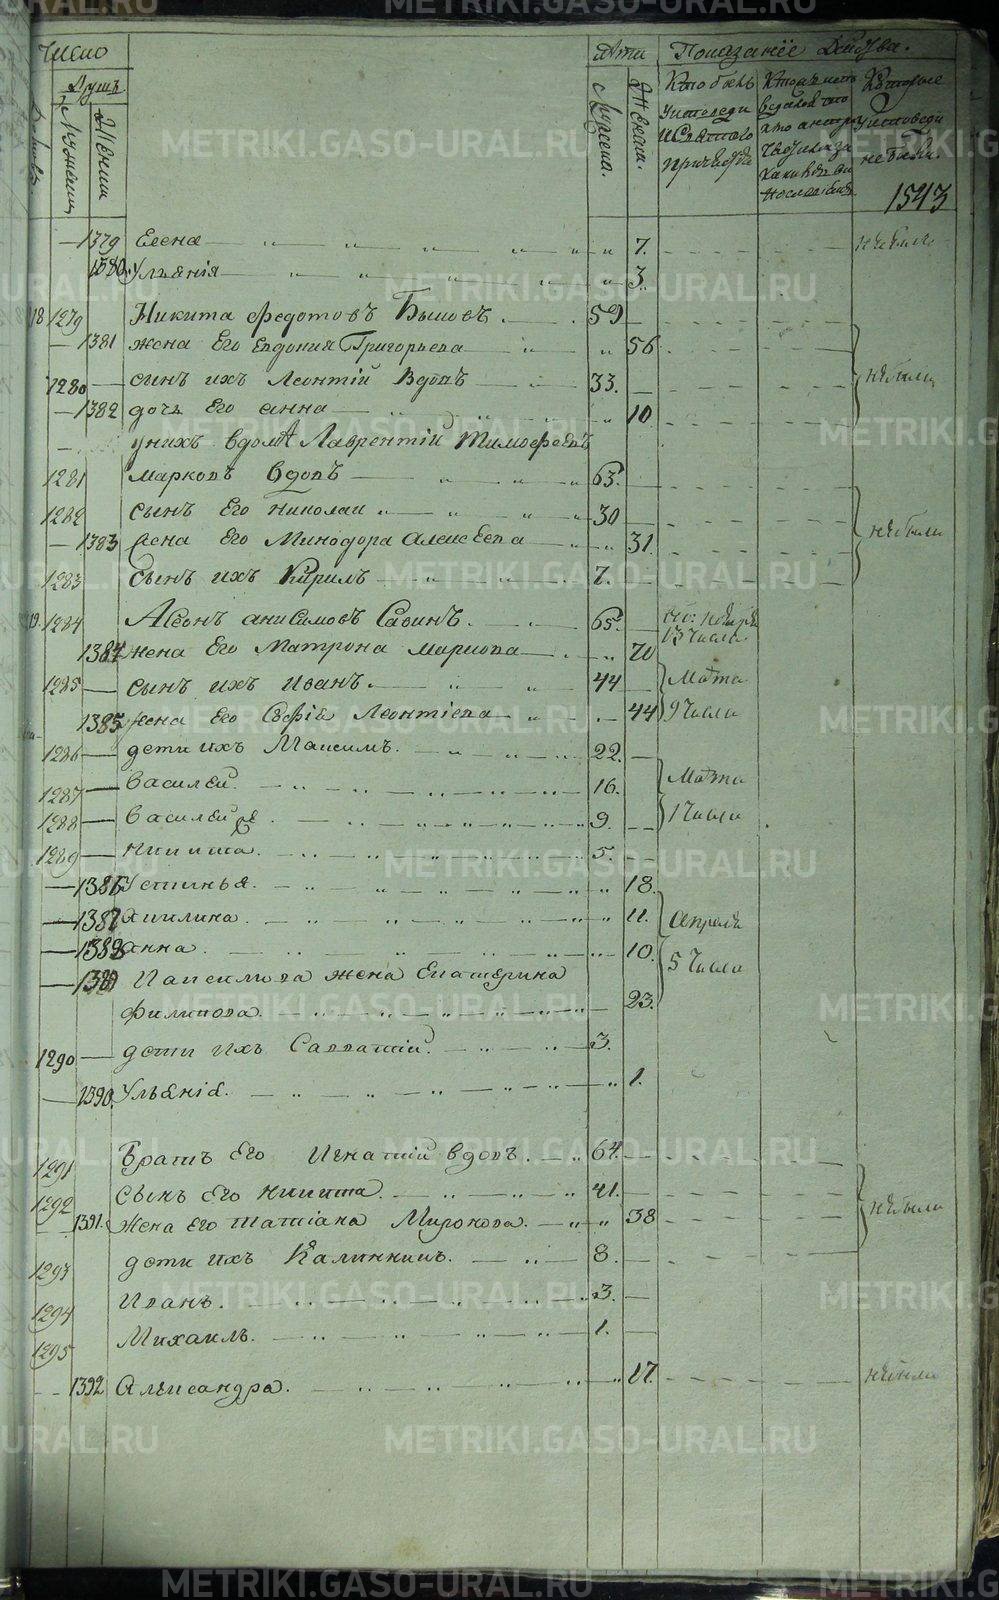 Число Лѣта Показанїе Действа.
Душъ
Дворовъ. Мужеска Женска Мужеска. Женска. Кто былъ у исповеди и Святаго причастїя Которые у исповеди не были.
1543
1379 Елена 7. не была
1380. Ульянія 3.
18 1279 Никита Федотовъ Бышовъ. 59
1381 жена Его Евдокия Григорьева 56
1280 сынъ ихъ Леонтій вдовъ 33. не были
1382 дочь Его анна 10
у нихъ в домѣ Лаврентій Тимофеевъ
1281 марковъ вдовъ 63.
1282 сынъ Его николаи 30
1383 жена Его Минодора Алексеева 31. не были
1283 сынъ ихъ Кирилъ 7.
19. 1284 Аксонъ анисимовъ Савинъ. 65.
13 числа
1384 жена Его Матрона маркова 70
1285 сынъ ихъ Иванъ. 44 Марта
1385 жена Его Софія Леонтіева 44 9 числа
1286 дети ихъ Максимъ. 22.
1287 василей. 16. Марта
1288 василей же. 9. 1 числа
1289 никита. 5.
1386 Устинья. 18.
1387 акилина. 11. Апреля
1388 анна. 10. 5 числа
1389 Максимова жена Екатерина
филипова. 23.
1290 дети ихъ Савватій. 3.
1390. Ульянія. 1.
1291 Братъ Его Игнатій вдовъ. 64.
1292 сынъ Его никита. 41.
1391. Жена Его татіана Миронова. 38 не были
1293 дети ихъ Калинникъ. 8.
1294 Иванъ. 3.
1295 Михаилъ. 1.
1392 Александра. 17. не была
METRIKI.GASO-URAL.RU